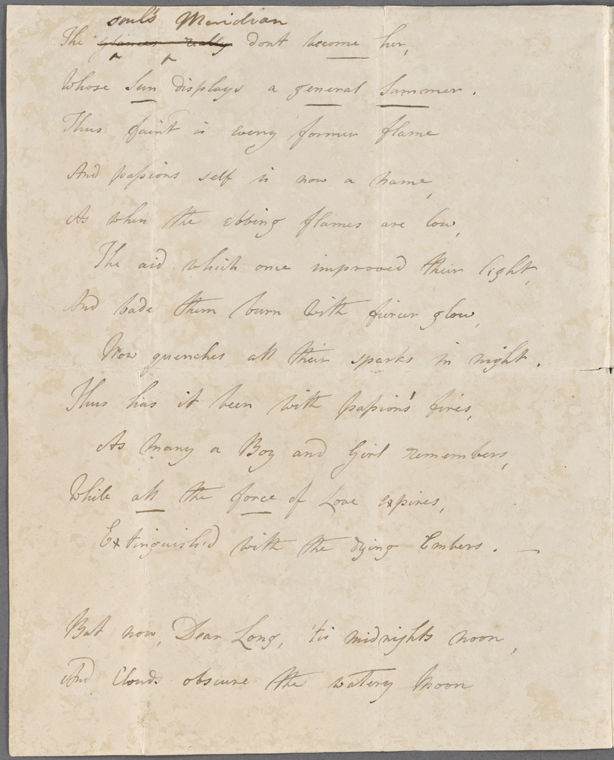 soul's Meridian
The glances really dont become her,
Whose Sun displays a general Summer.
Thus faint is every former flame
And passions self is now a name,
As when the ebbing flames are low,
The aid which once improved their light,
And bade them burn with fiercer glow,
Now quenches all their sparks in night.
Thus has it been with passion's fires,
As many a Boy and Girl remembers,
While all the force of Love expires,
Extinguish'd with the dying Embers. —
But now, Dear Long, 'tis midnights noon,
And Clouds obscure the watery Moon